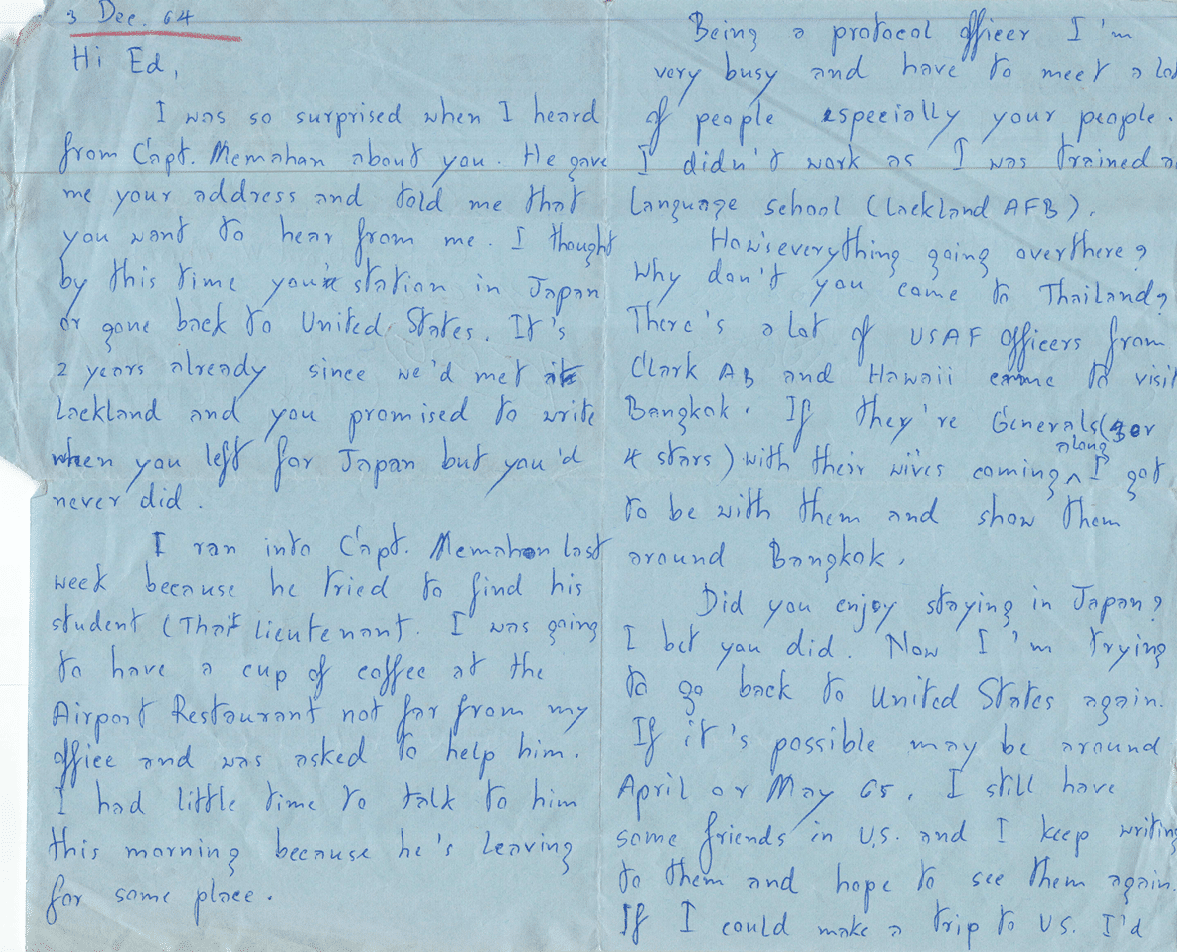 3 Dec. 64
Hi Ed,
I was so surprised when I heard
from Capt. Memahan about you. He gave
me your address and told me that
you want to hear from me. I thought
by this time you're station in Japan
or gone back to United States. It's
2 years already since we'd met at
Lackland and you promised to write
when you left for Japan but you'd
never did.
I ran into Capt. Memahon last
week because he tried to find his
student (Thai lieutenant. I was going
to have a cup of coffee at the
Airport Restaurant not far from my
office and was asked to help him.
I had little time to talk to him
this morning because he's leaving
for some place.
Being a protocol officer I'm
very busy and have to meet a lot
of people especially your people.
I didn't work as I was trained at
Language school (Lackland AFB).
How's everything going over there?
Why don't you come to Thailand?
There's a lot of USAF officers from
Clark AB and Hawaii came to visit
Bangkok. If they're Generals (3 or
4 stars) with their wives coming along I got
to be with them and show them
around Bangkok.
Did you enjoy staying in Japan?
I bet you did. Now I'm trying
to go back to United States again.
If it's possible may be around
April or May 65. I still have
some friends in U.S. and I keep writing
to them and hope to see them again.
If I could make a trip to US. I'd